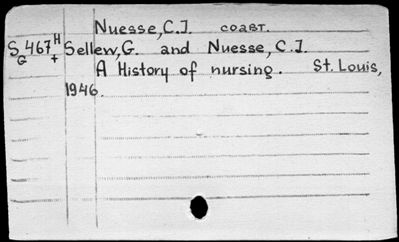 Nuesse, C.J. соавт.
S 467 H Sellew, G. and Nuesse, C.J.
G +
A History of nursing. St. Louis,
1946.